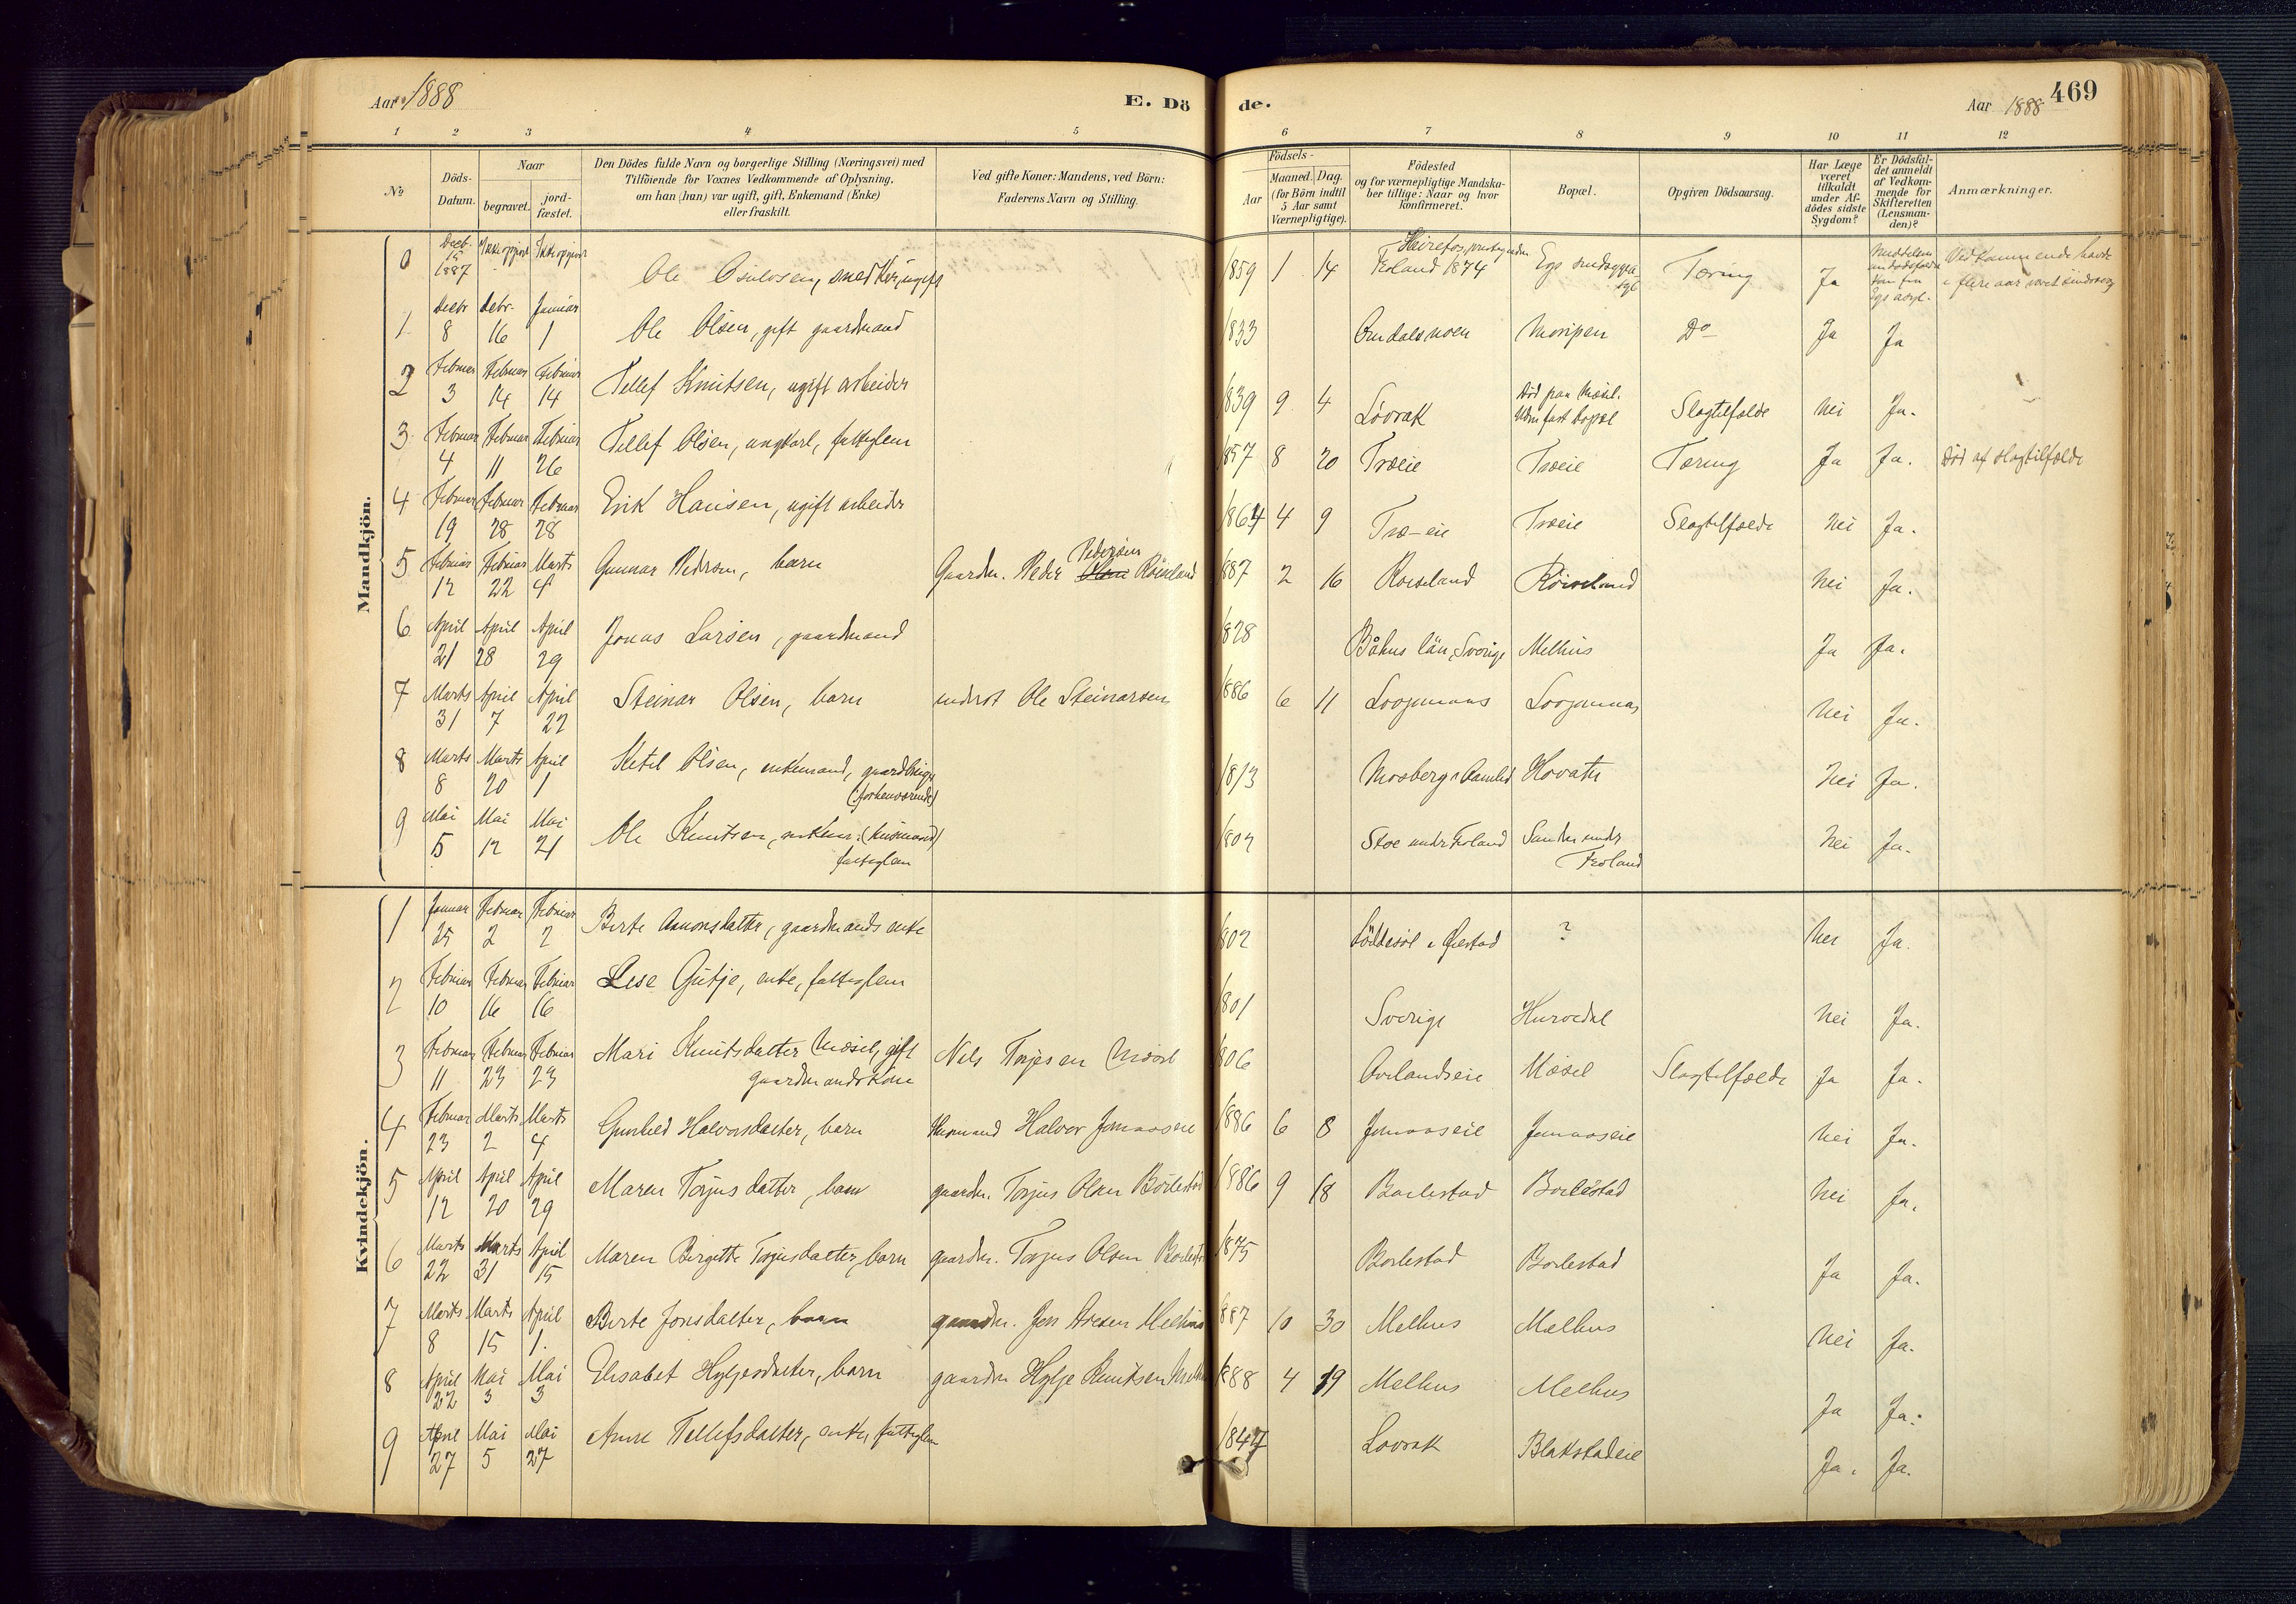 Aar 1888
E. Dö
de.
Aar 1888
469
1 2 3 4 5 6 7 8 9 10 11 12
No
Döds-Datum.
Naar
begravet.
jord-fæstet.
Den Dödes fulde Navn og borgerlige Stilling (Næringsvei) med
Tilföiende for Voxnes Vedkommende af Oplysning,
om han (hun) var ugift, gift, Enkemand (Enke)
eller fraskilt.
Ved gifte Koner: Mandens, ved Börn:
Faderens Navn og Stilling.
Födsels-
Aar
Maaned. Dag.
(for Börn indtil
5 Aar samt
Værnepligtige).
Födested
og for værnepligtige Mandska-
ber tillige: Naar og hvor
konfirmeret.
Bopæl.
Opgiven Dödsaarsag.
Har Læge
været
tilkaldt
under Af-
dödes sidste
Sygdom?
Er Dödsfal-
det anmeldt
af Vedkom-
mende for
Skifteretten
(Lensman-
den)?
Anmærkninger.
Mandkjön.
0 Decb. 15 1887 Ikke opgivet Ikke opgivet Ole Osulvsen, snedker, ugift 1859 1 14 Froland 1874 Tæring Ja Vedkommende havde i flere aar været sindssyg
1 Decbr 8 Debr. 16 Januar 1 Ole Olsen, gift gaardmand 1833 Mosipen Do Ja Ja
2 Februar 3 Februar 14 Februar 14 Tellef Knutsen, ugift arbeider 1839 9 4 Lövrak Död paa Mæsel. Uden fast bopæl Slagtilfælde Nei Ja.
3 Februar 4 Februar 11 Februar 26 Tellef Olsen, ungkarl, fattiglem 1857 8 20 Træeie Træeie Tæring Ja Ja. Död af slagtilfælde
4 Februar 19 Februar 28 Februar 28 Erik Hansen, ugift arbeider 1864 4 9 Træ-eie Træeie Slagtilfælde Nei Ja.
5 Februar 12 Februar 22 Marts 4 Gunnar Pedersen, barn Gaardm. Peder Pedersen Röiseland 1887 2 16 Roiseland Röiseland Nei Ja.
6 April 21 April 28 April 29 Jonas Larsen, gaardmand 1828 Båhus län, Sverige Melhus Ja Ja.
7 Marts 31 April 7 April 22 Steinar Olsen, barn inderst Ole Steinarsen 1886 6 11 Nei Ja.
8 Marts 8 Marts 20 April 1 Ketil Olsen, enkemand, gaardbruger (forhenværende) 1813 Nei Ja.
9 Mai 5 Mai 12 Mai 21 Ole Knutsen, enkem. (husmand) fattiglem 1802 Stoe under Froland Sanden under Froland Nei Ja.
Kvindekjön.
1 Januar 25 Februar 2 Februar 2 Berte Aanonsdatter, gaardmands enke 1802 Löddesöl i Öiestad ? Nei Ja.
2 Februar 10 Februar 16 Februar 16 Lise Gutje, enke, fattiglem 1801 Sverige Hurvedal Nei Ja.
3 Februar 11 Februar 23 Februar 23 Mari Knutsdatter Mæsel, gift gaardmandskone Nils Terjesen Mæsel 1806 Ovelandseie Mæsel Slagtilfælde Ja Ja.
4 Februar 23 Marts 2 Marts 4 Gunhild Halvorsdatter, barn Husmand Halvor Jomaaseie 1886 6 8 Jomaaseie Jomaaseie Nei Ja.
5 April 12 April 20 April 29 Maren Torjusdatter, barn gaardm. Torjus Olsen Börlestad 1886 9 18 Borlestad Borlestad Nei Ja.
6 Marts 22 Marts 31 April 15 Maren Birgitte Torjusdatter, barn gaardm. Torjus Olsen Borlestad 1875 Borlestad Borlestad Ja Ja.
7 Marts 8 Marts 15 April 1. Berte Jonsdatter, barn gaardm. Jon Melhus 1887 10 30 Melhus Mælhus Nei Ja.
8 April 22 Mai 3 Mai 3 Elisabet Hyljesdatter, barn gaardm Hylje Knutsen Melhus 1888 4 19 Melhus Melhus Ja Ja.
9 April 27 Mai 5 Mai 27 Anne Tellefsdatter, enke, fattiglem 1847 Lovrak Blakstadeie Ja. Ja.